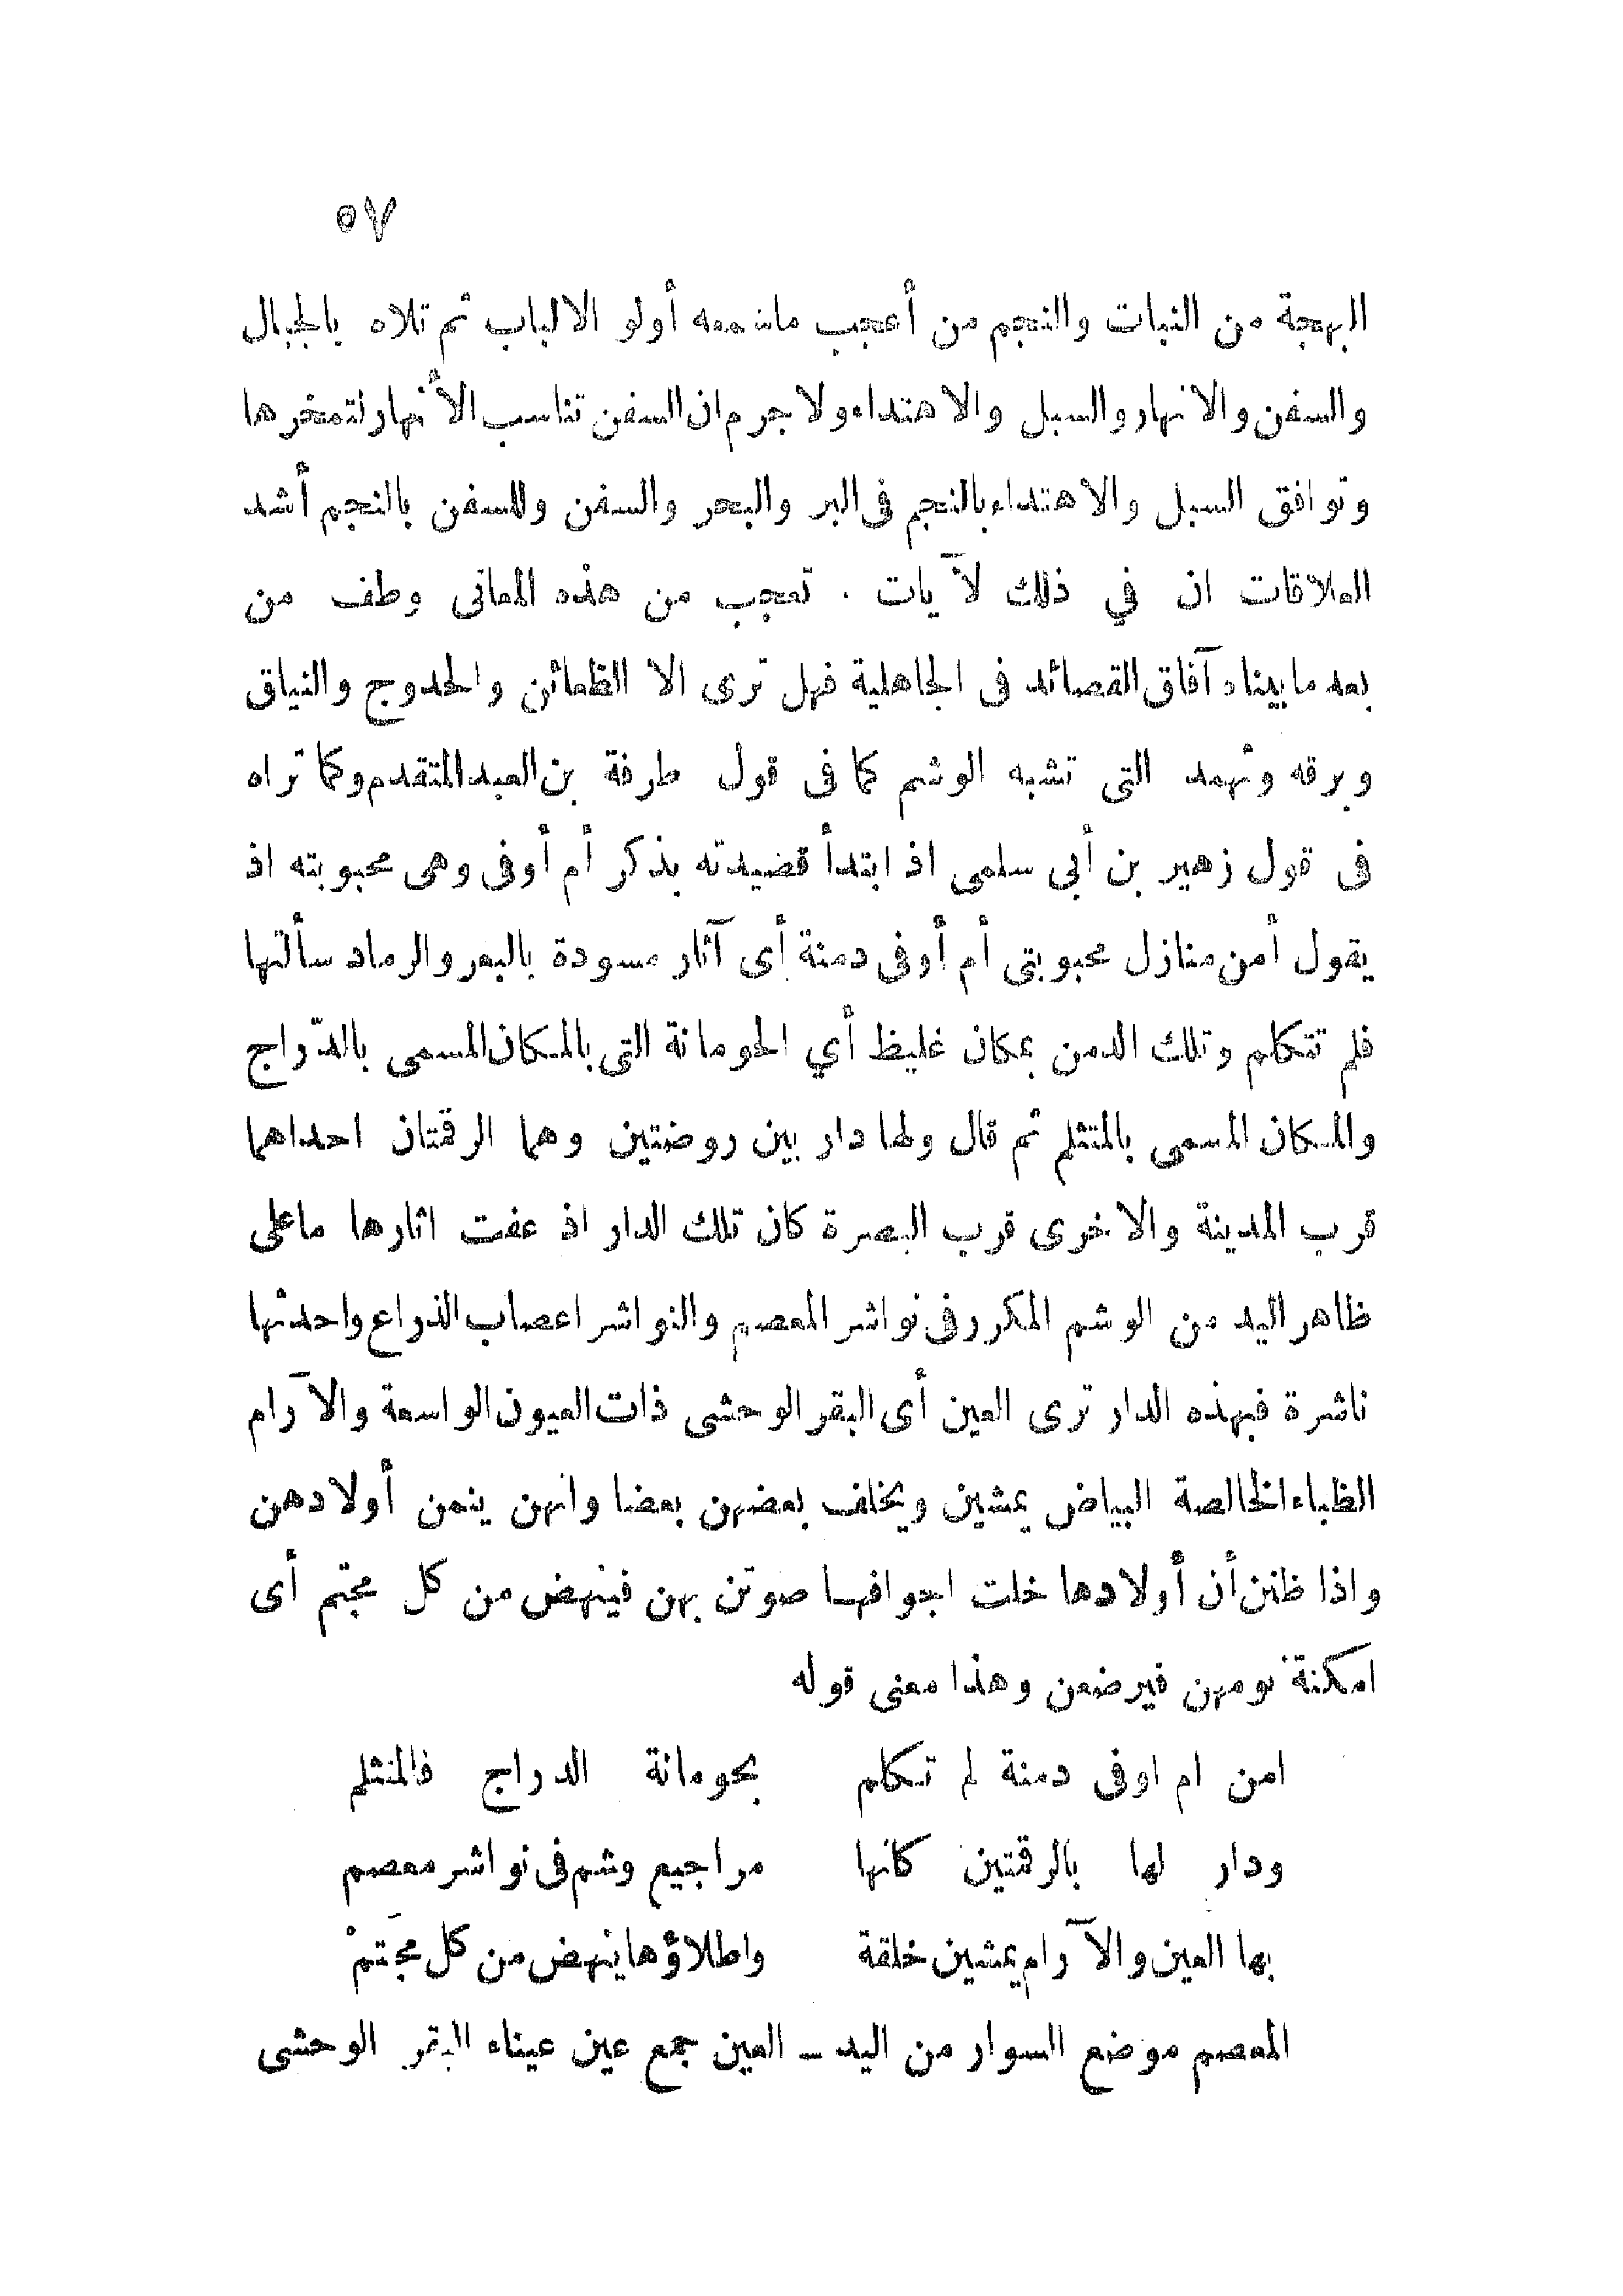 ٥٧
البهجة من النبات والنجم من أعجب ماسمعه أولو الالباب ثم تلاه بالجبال
والسفن والانهار والسبل والاهتداء ولا جرم ان السفن تناسب الأنهار لتمخرها
وتوافق السبل والاهتداء بالنجم فى البر والبحر والسفن وللسفن بالنجم أشد
العلاقات ان في ذلك لآيات . تعجب من هذه المعانى وطف من
بعد ما بيناه آفاق القصائد فى الجاهلية فهل ترى الا الظعائن والحدوج والنياق
وبرقه وثهمد التى تشبه الوشم كما فى قول طرفة بن العبد المتقدم وكما تراه
فى قول زهير بن أبى سلمى اذ ابتدأ قصيدته بذكر أم أوفى وهى محبوبته اذ
يقول أمن منازل محبوبتى أم أوفى دمنة أى آثار مسودة بالبعر والرماد سألتها
فلم تتكلم وتلك الدمن بمكان غليظ أي الحومانة التى بالمكان المسمى بالدّراج
والمكان المسمى بالمتثلم ثم قال ولها دار بين روضتين وهما الرقمتان احداهما
قرب المدينة والاخرى قرب البصرة كان تلك الدار اذ عفت اثارها ما على
ظاهر اليد من الوشم المكرر فى نواشر المعصم والنواشر اعصاب الذراع واحدتها
ناشرة فبهذه الدار ترى العين أى البقر الوحشى ذات العيون الواسعة والآرام
الظباء الخالصة البياض يمشين ويخلف بعضهن بعضا وانهن ينمن أولادهن
واذا ظنن أن أولادها خلت اجوافها صوتن بهن فينهض من كل مجثم أى
امكنة نومهن فيرضعن وهذا معنى قوله
امن ام اوفى دمنة لم تكلم بحومانة الدراج فالمتثلم
ودار لها بالرقمتين كانها مراجيع وشم فى نواشر معصم
بها العين والآرام يمشين خلقة واطلاؤها ينهض من كل مجَثمْ
المعصم موضع السوار من اليد – العين جمع عين عيناء البقر الوحشى